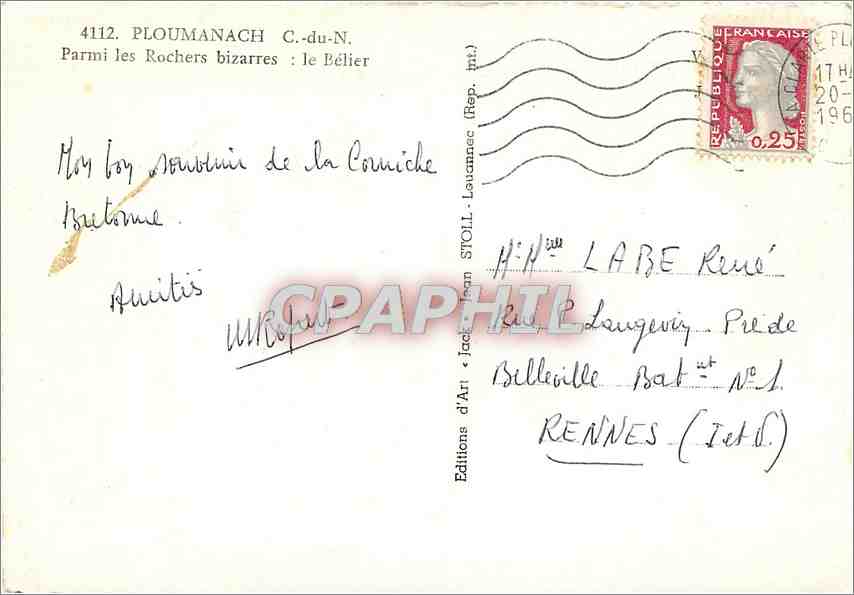 4112. PLOUMANACH C.-du-N.
Parmi les Rochers bizarres : le Bélier
Mon bon souvenir de la Corniche
Bretonne.
Amitiés
Editions d'Art « Jack - Jean STOLL - Louannec (Rep. int.)
REPUBLIQUE FRANÇAISE
0,25
17H
20-
196
Mr Mme LABE René
Rue P. Langevin Pré de
Belleville Bat N° 1.
RENNES (I et V.)
CPAPHIL